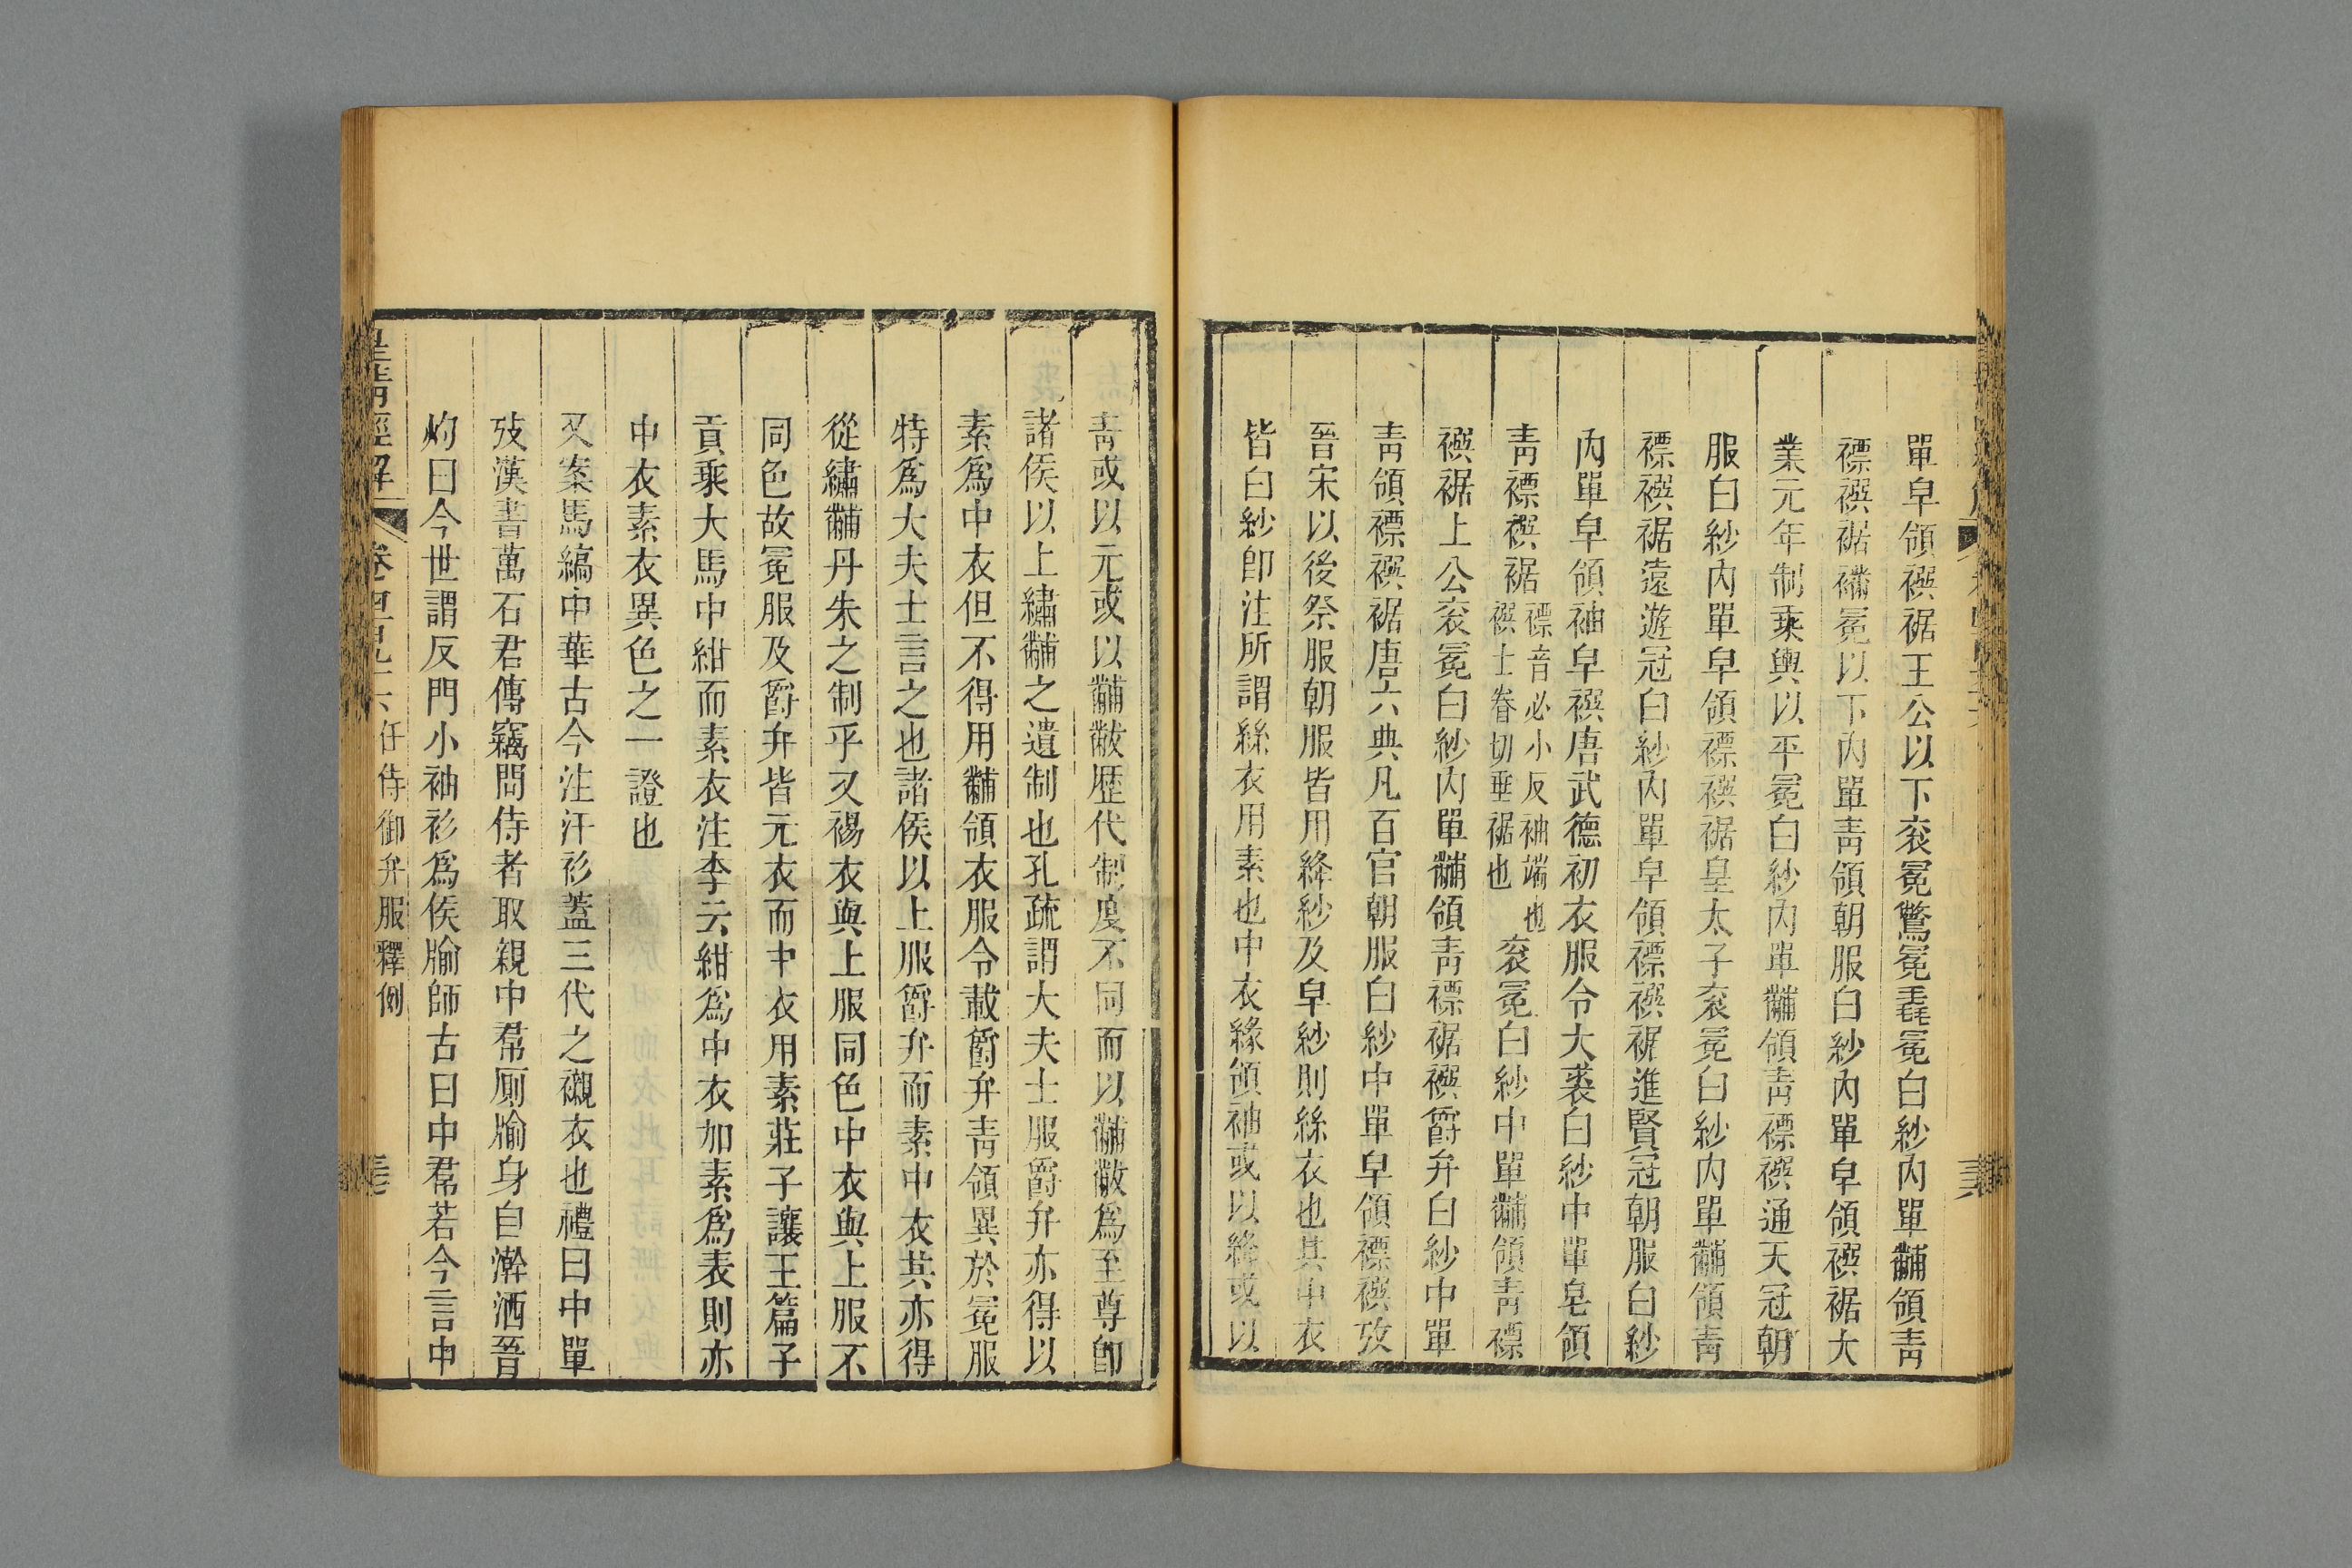 單皁領襈裾王公以下衮冕鷩冕毳冕白紗内單黼領靑
褾襈裾襦冕以下内單靑領朝服白紗内單皁領襈裾大
業元年制乘輿以平冕白紗内單黼領靑褾襈通天冠朝
服白紗内單皁領褾襈裾皇太子衮冕白紗内單黼領靑
褾襈裾遠遊冠白紗内單皁領褾襈裾進賢冠朝服白紗
内單皁領袖皁襈唐武德初衣服令大裘白紗中單皂領
靑褾襈裾褾音必小反袖端也襈士眷切垂裾也衮冕白紗中單黼領靑褾
襈裾上公衮冕白紗内單黼領靑褾裾襈爵弁白紗中單
靑領褾襈裾唐六典凡百官朝服白紗中單皁領褾襈攷
晉宋以後祭服朝服皆用絳紗及皁紗則絲衣也其中衣
皆白紗卽注所謂絲衣用素也中衣緣領袖或以絳或以
靑或以元或以黼黻歷代制度不同而以黼黻爲至尊卽
諸侯以上繡黼之遺制也孔疏謂大夫士服爵弁亦得以
素爲中衣但不得用黼領衣服令載爵弁靑領異於冕服
特爲大夫士言之也諸侯以上服爵弁而素中衣其亦得
從繡黼丹朱之制乎又裼衣與上服同色中衣與上服不
同色故冕服及爵弁皆元衣而中衣用素莊子讓王篇子
貢乘大馬中紺而素衣注李云紺爲中衣加素爲表則亦
中衣素衣異色之一證也
又案馬縞中華古今注汗衫蓋三代之襯衣也禮曰中單
攷漢書萬石君傳竊問侍者取親中帬厠牏身自澣洒晉
灼曰今世謂反門小袖衫爲侯牏師古曰中帬若今言中
皇淸經解 卷 任侍御弁服釋例